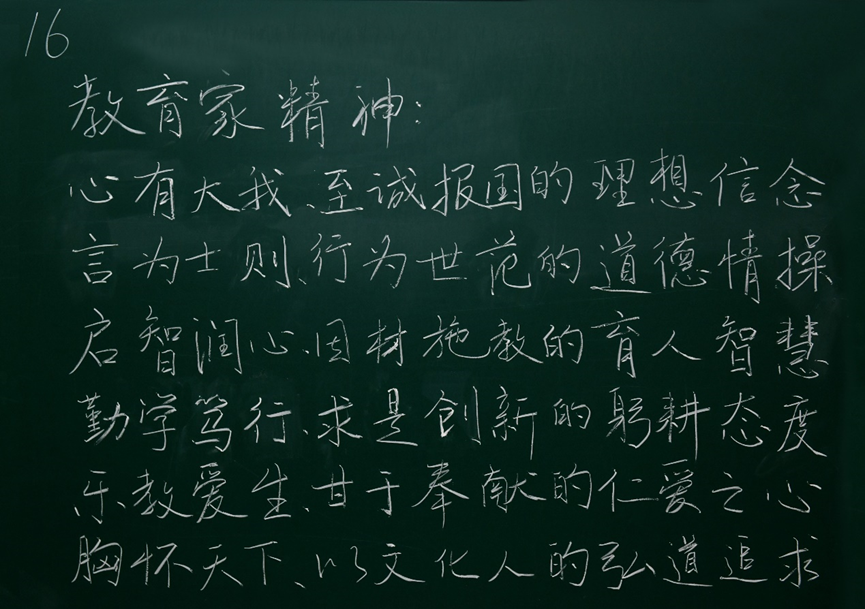 16
教育家精神:
心有大我、至诚报国的理想信念
言为士则、行为世范的道德情操
启智润心、因材施教的育人智慧
勤学笃行、求是创新的躬耕态度
乐教爱生、甘于奉献的仁爱之心
胸怀天下、以文化人的弘道追求